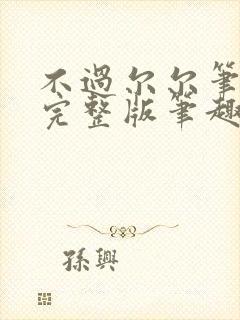 不過尔尔筆
完整版筆趣
孫興